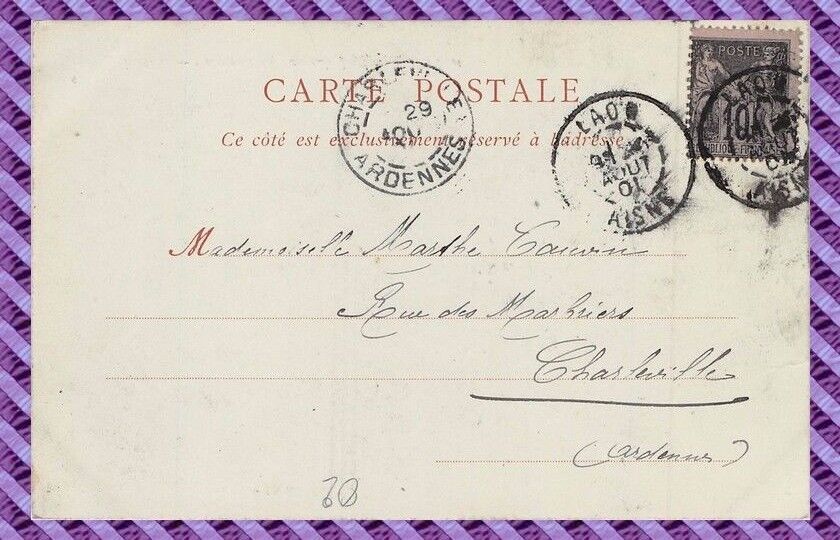 POSTE
10
CARTE POSTALE
Ce côté est exclusivement réservé à l'adresse.
CHARLEVILLE
29
AOUT
ARDENNES
LAON
AOUT
01
AISNE
LAON
01
AISNE
Mademoiselle Marthe Cauvin
Rue des
Charleville
(Ardennes)